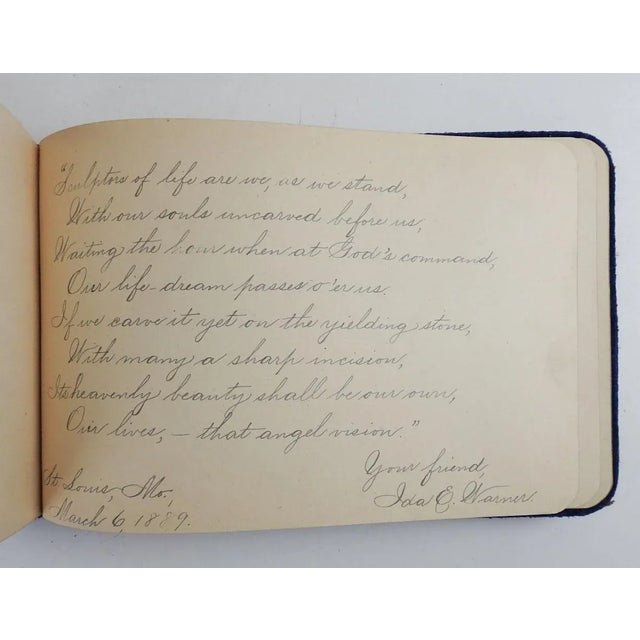 "Sculptors of life are we, as we stand,
With our souls uncarved before us,
Waiting the hour when at God's command,
Our life-dream passes o'er us.
If we carve it yet on the yielding stone,
With many a sharp incision,
Its heavenly beauty shall be our own,
Our, lives, — that angel vision."
Your friend,
Ida E. Warner.
St Louis, Mo,
March 6, 1889.